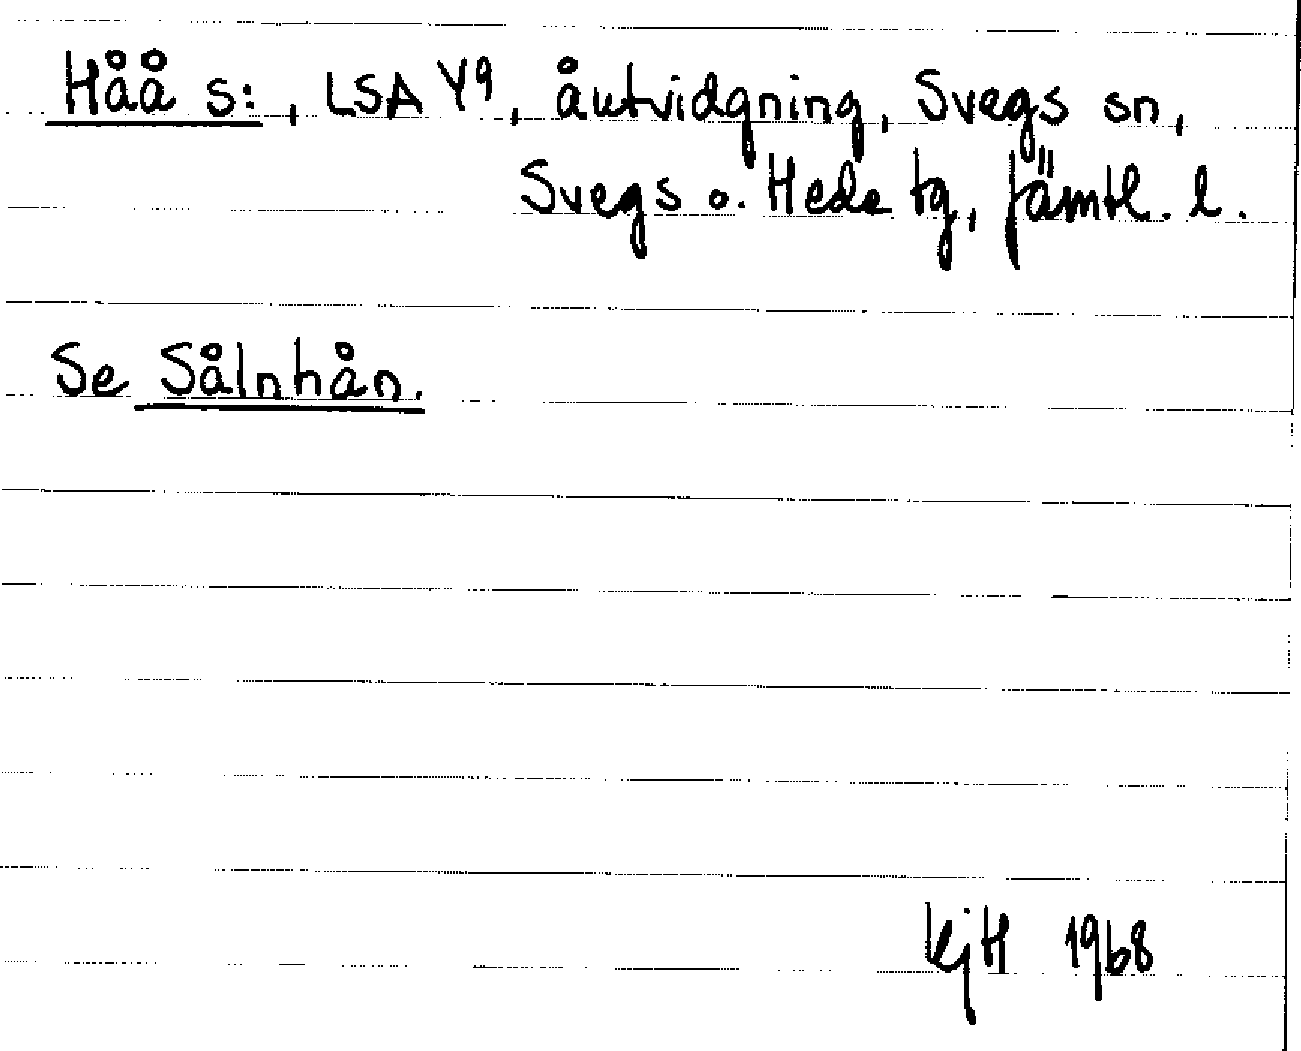 Håå s:, LSA Y9, åutvidgning, Svegs sn,
Svegs o. Hede tg, Jämtl. l.
Se Sålnhån.
KjH 1968